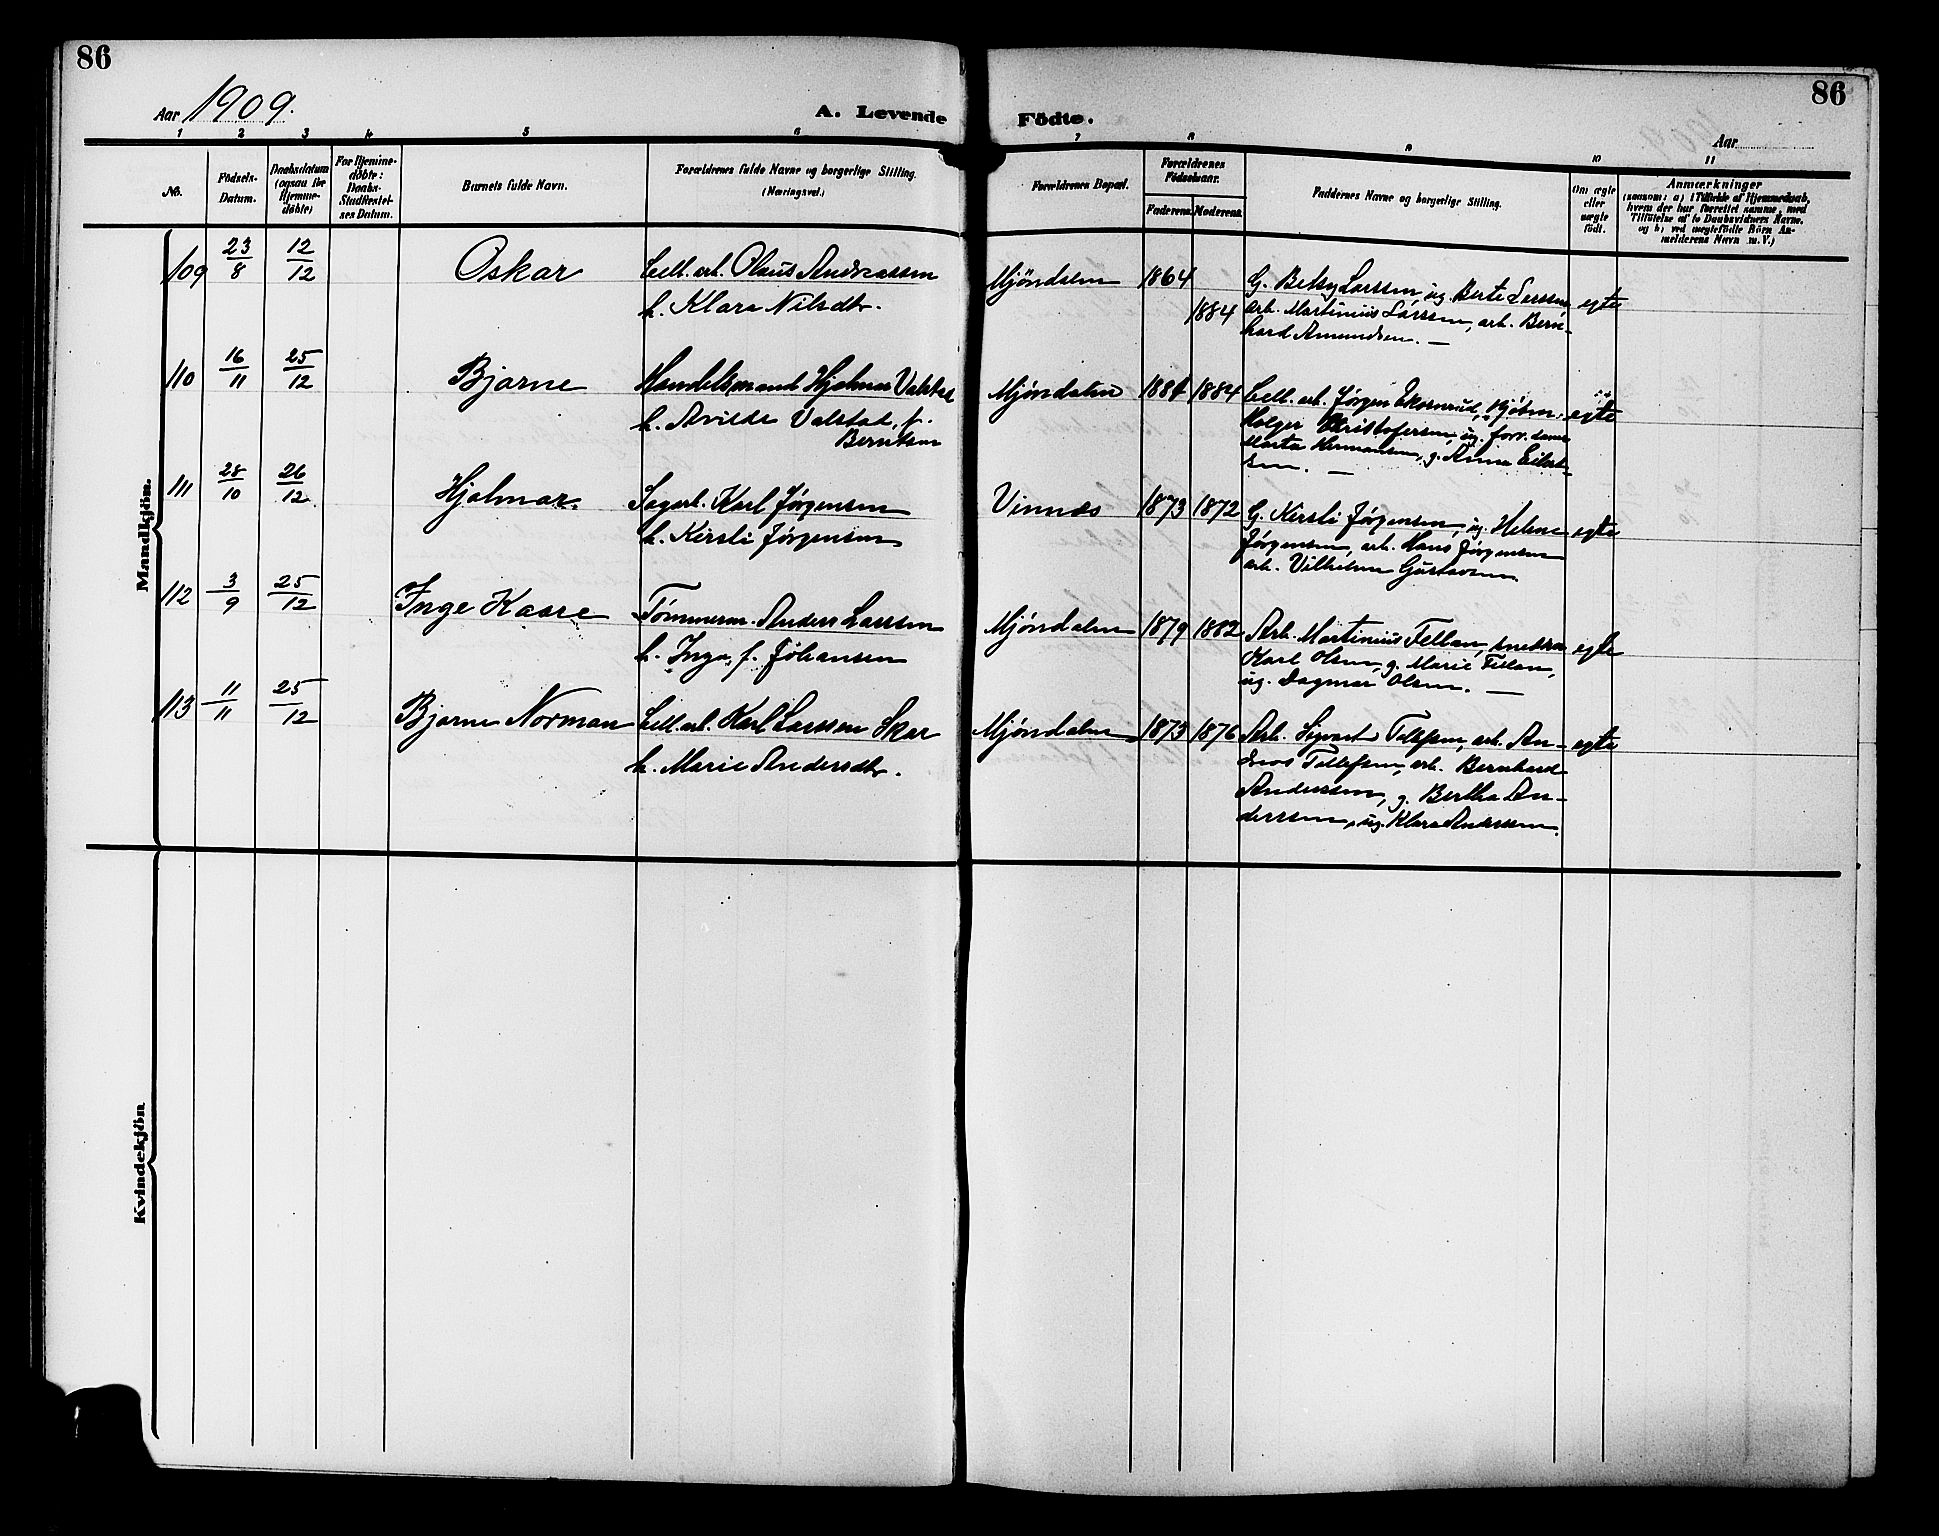 86
86
Aar 1909.
A. Levende Födte.
Aar
1 2 3 4 5 6 7 8 9 10 11
No.
Födsels-
Datum.
Daabsdatum
(ogsaa for
Hjemme-
döbte)
For Hjemme-
döbte:
Daabs-
Stadfæstel-
ses Datum.
Barnets fulde Navn.
Forældrenes fulde Navne og borgerlige Stilling.
(Næringsvei.)
Forældrenes Bopæl.
Forældrenes
Födselsaar.
Faderens Moderens
Faddernes Navne og borgerlige Stilling.
Om ægte
eller
uægte
födt.
Anmærkninger
(saasom: a) i Tilfælde af Hjemmedaab,
hvem der har forrettet samme, med
Tilföielse af to Daabsvidners Navne.
og b) ved uægtefödte Börn An-
melderens Navn m. V.)
Mandkjön.
109 23/8 12/12 Oskar
Cell. arb. Olaus Andreassen
h. Klara Nilsdtr.
Mjøndalen 1864 1884
G. Betsy Larssen, ug. Berte Larssen
arb. Martinius Larssen, arb. Bern-
hard Amundsen. —
egte
110 16/11 25/12 Bjarne
Handelsmand Hjalmar Valstad
h. Arvilde Valstad, f.
Berntsen
Mjøndalen 1884 1884
Cell. arb. Jørgen Ekornrud, Kjøbm.
Holger Kristofersen, ug. forr. dame
Marta Hermansen, g. Anna Eilert-
sen. —
egte
111 28/10 26/12 Hjalmar.
Sagarb. Karl Jørgensen
h. Kirsti Jørgensen
Vinnæs 1873 1872
G. Kirsti Jørgensen, ug. Helene
Jørgensen, arb. Hans Jørgensen
arb. Vilhelm Gustavsen
egte
112 3/9 25/12 Inge Kaare
Tømmerm. Anders Larssen
h. Inga, f. Johansen
Mjøndalen 1879 1882
Arb. Martinius Tellan, snekker
Karl Olsen, g. Marie Tellan,
ug. Dagmar Olsen. —
egte
113 11/11 25/12 Bjarne Norman
Cell. arb. Karl Larssen Skar
h. Marie Andersdtr.
Mjøndalen 1873 1876
Arb. Sigvart Tollefsen, arb. An-
dreas Tollefsen, arb. Bernhard
Anderssen, g. Bertha An-
derssen, ug. Klara Anderssen.
egte
Kvindekjön